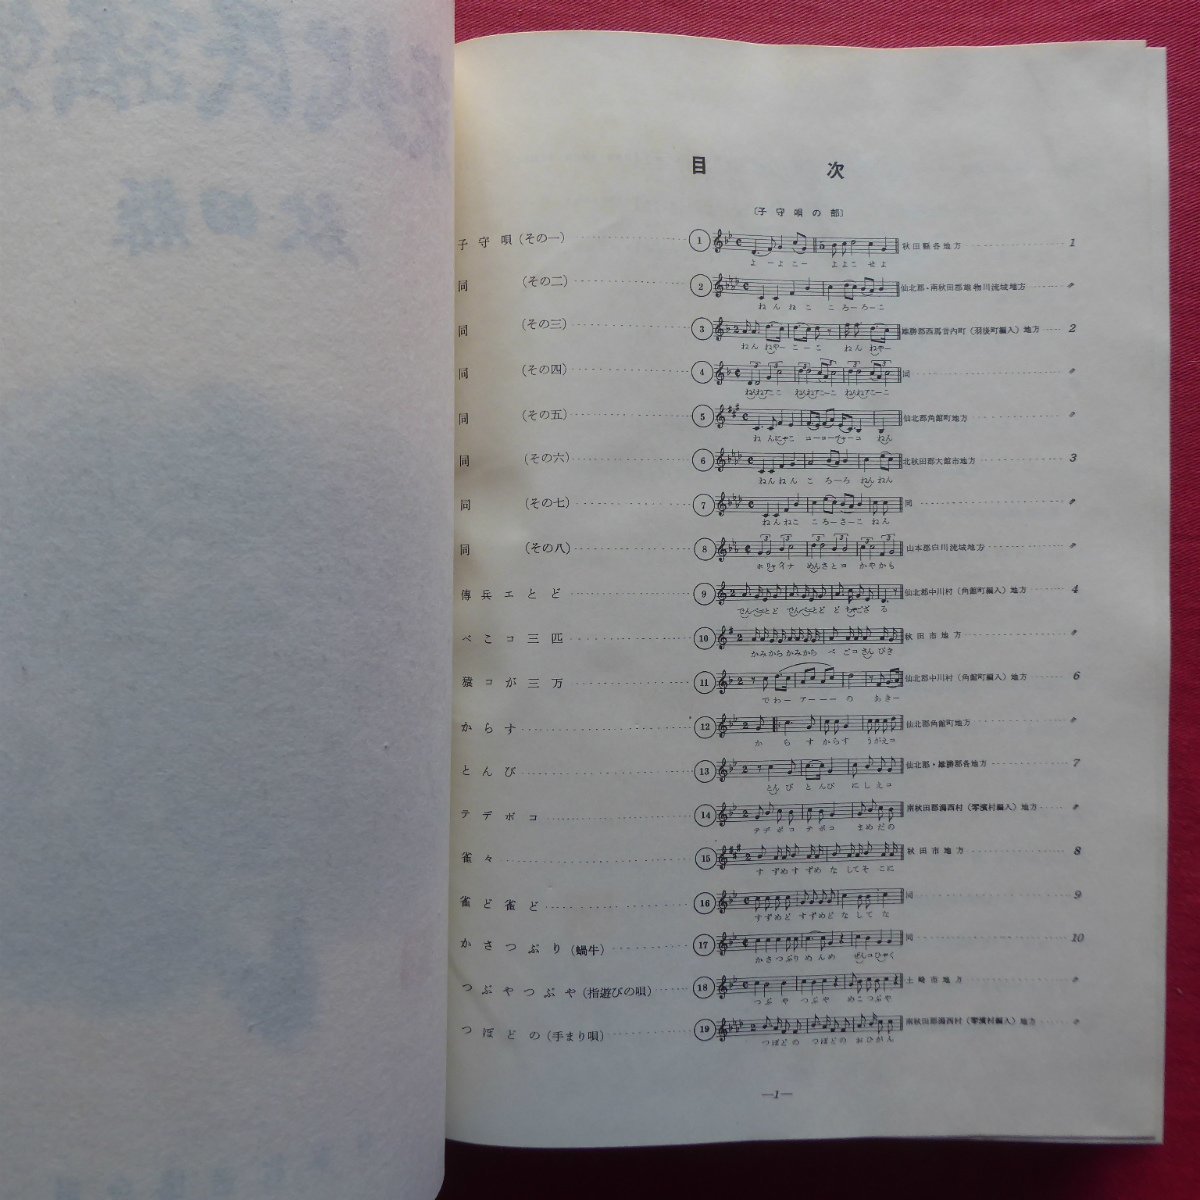 目次
〔子守唄の部〕
子守唄(その一) 1 秋田縣各地方 1
よーよこー よよこ せよ
同 (その二) 2 仙北郡・南秋田郡雄物川流域地方 〃
ねんねこ ころーろーこ
同 (その三) 3 雄勝郡西馬音内町(羽後町編入)地方 2
ねんねやーこーこ ねんねやー
同 (その四) 4 同 〃
同 (その五) 5 仙北郡角館町地方 〃
同 (その六) 6 北秋田郡大館市地方 3
ねんねん ころーろ ねんねん
同 (その七) 7 同 〃
ねんねこ ころーさーこ ねん
同 (その八) 8 山本郡白川流域地方 〃
めんさとコ かやから
傳兵エとど 9 仙北郡中川村(角館町編入)地方 4
でんべーとど でんべーとど
べこコ三匹 10 秋田市地方 〃
かみからかみから べごコさんびき
コが三万 11 仙北郡中川村(角館町編入)地方 6
でわーアーーーの あきー
からす 12 仙北郡角館町地方 〃
からすからす うがえコ
とんび 13 仙北郡・雄勝郡各地方 7
とんびとんび にしえコ
テデポコ 14 南秋田郡潟西村(零濱村編入)地方 〃
テデポコテポコ まめだの
雀々 15 秋田市地方 8
すずめすずめ なしてそこに
雀ど雀ど 16 同 9
すずめどすずめど なしてな
かさつぶり(蝸牛) 17 同 10
かさつぶりめんめ ぜんコひゃく
つぶやつぶや(指遊びの唄) 18 土崎市地方 〃
つぶやつぶや めこつぶや
つぼどの(手まり唄) 19 南秋田郡潟西村(零濱村編入)地方 〃
つぼどのつぼどの おひがん
—1—